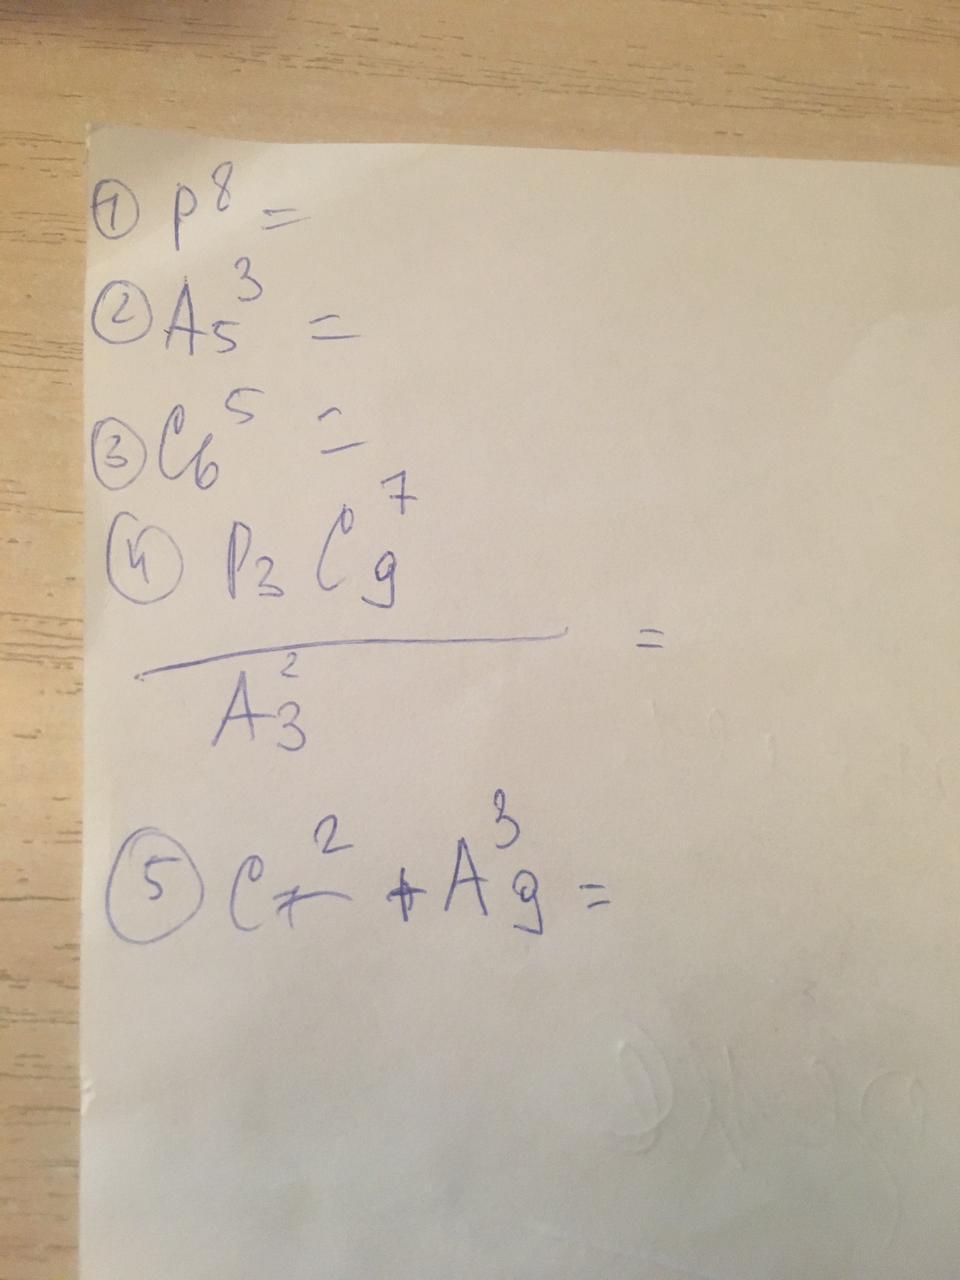 ① P⁸ =
② A₅³ =
③ C₆⁵ =
④ P₃ C₉⁷
=
A₃²
⑤ C₇² + A₉³ =